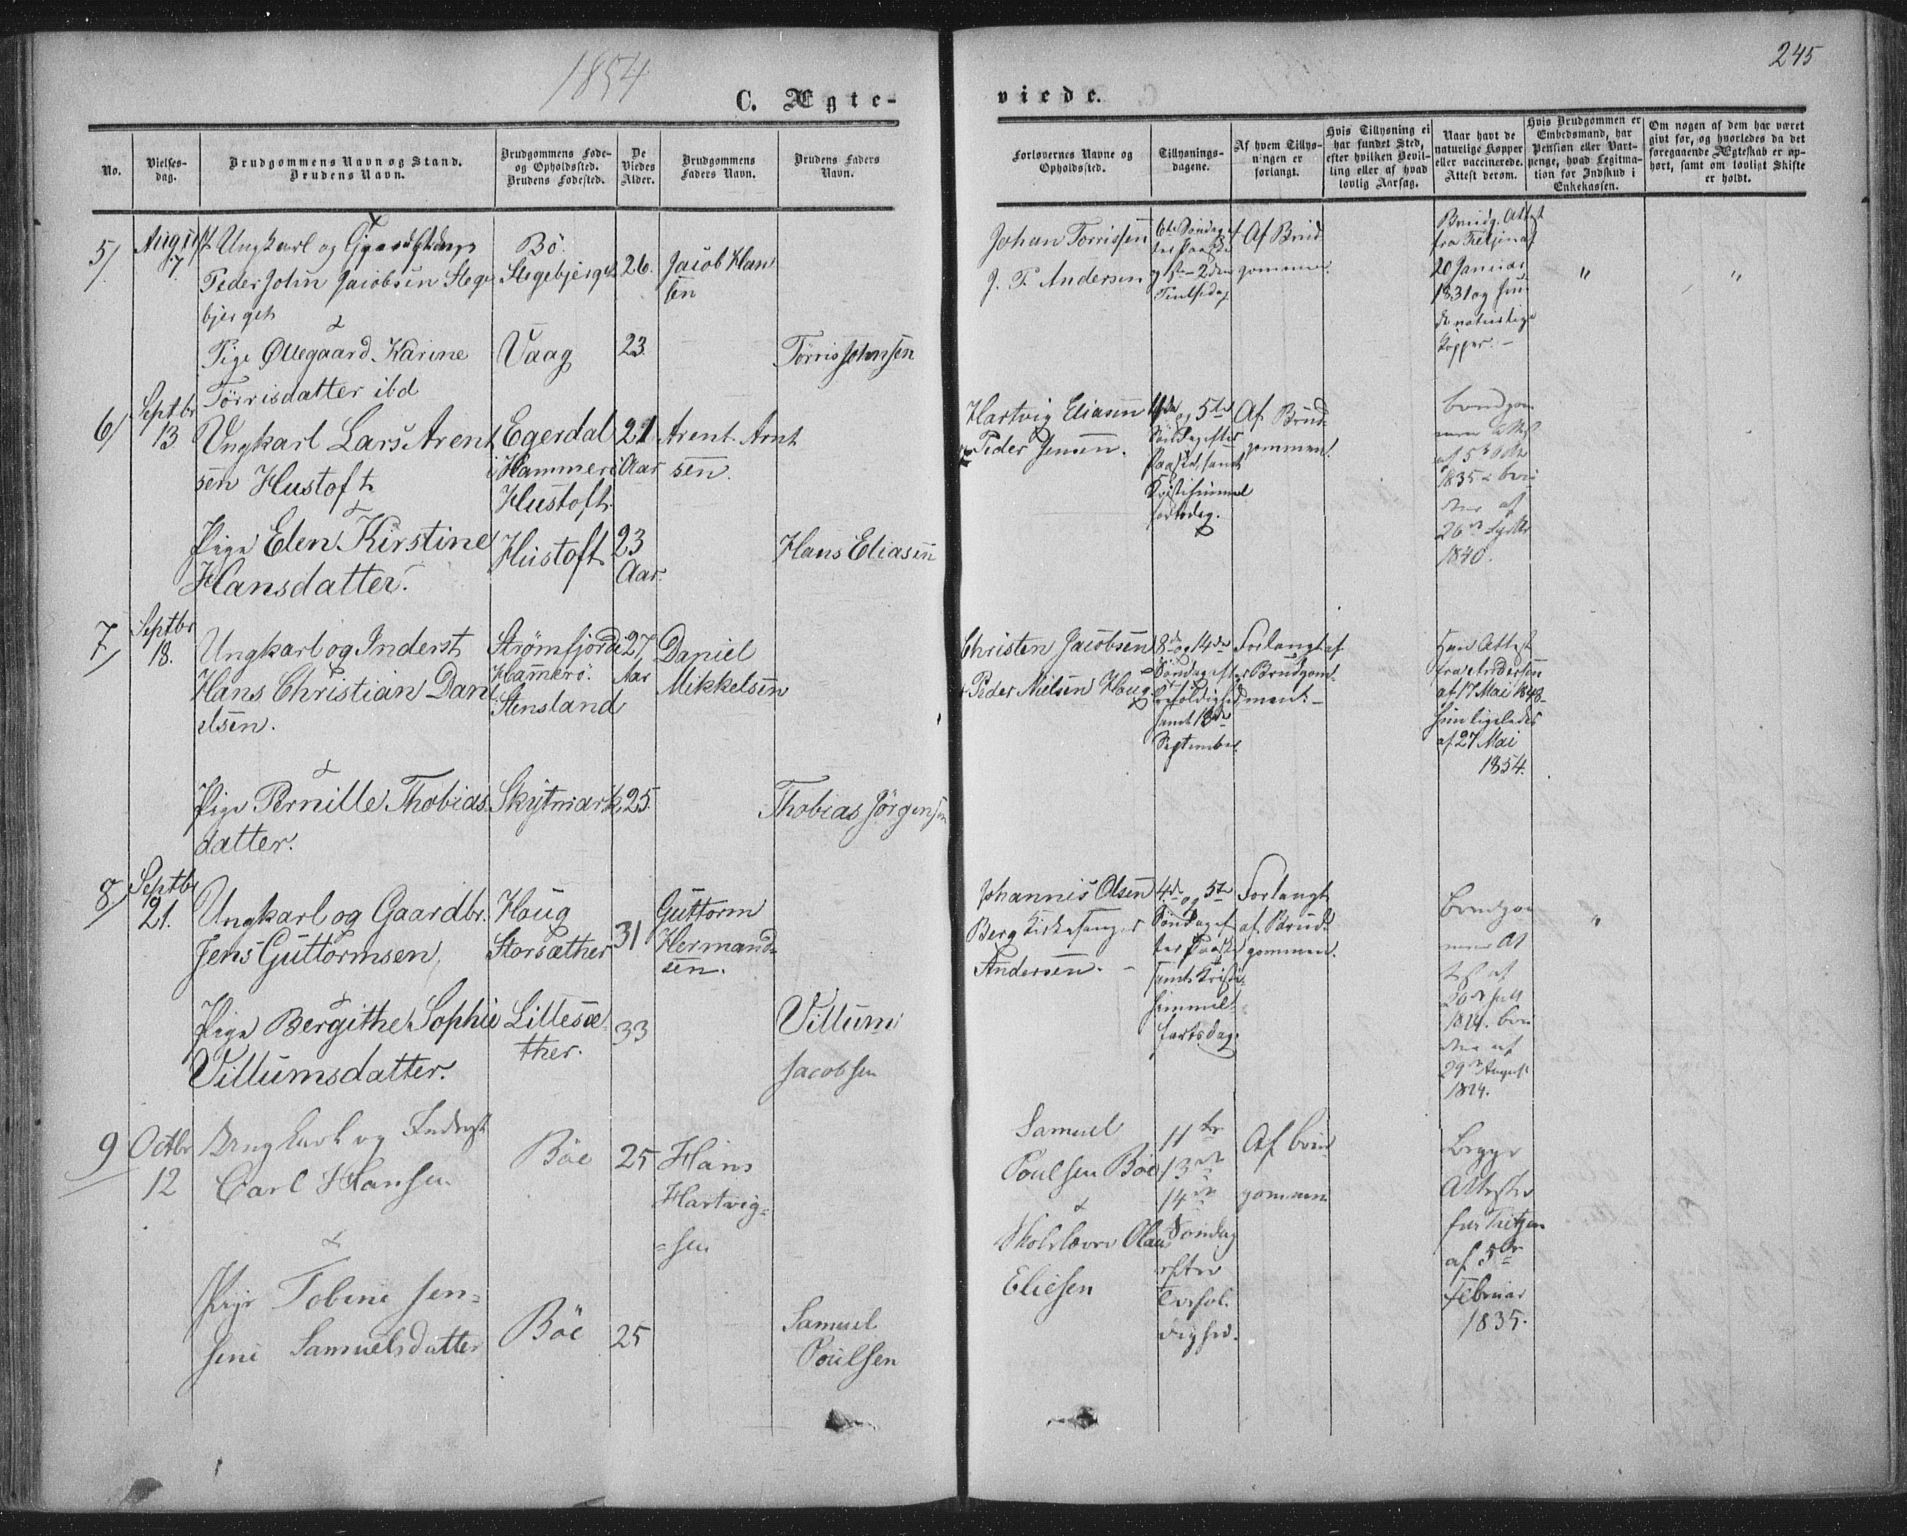 1854
245
C. Ægte-
viede.
No.
Vielses-
dag.
Brudgommens Navn og Stand.
Brudens Navn.
Brudgommens Føde-
og Opholdssted.
Brudens Fødested.
De
Viedes
Alder.
Brudgommens
Faders Navn.
Brudens Faders
Navn.
Forlovernes Navne og
Opholdssted.
Tillysnings-
dagene.
Af hvem Tillys-
ningen er
forlangt.
Hvis Tillysning ei
har fundet Sted,
efter hvilken Bevil-
ling eller af hvad
lovlig Aarsag.
Naar havt de
naturlige Kopper
eller vaccinerede.
Attest derom.
Hvis Brudgommen er
Embedsmand, har
Pension eller Vart-
penge, hvad Legitima-
tion for Indskud i
Enkekassen.
Om nogen af dem har været
givt før, og hvorledes da det
foregaaende Ægteskab er op-
hørt, samt om lovligt Skifte
er holdt.
5/
August
7.
Ungkarl og
Peder John Jacobsen Stege
bjerget
&
Pige Ollegaard Karine
Tørrisdatter ibd
Bø
Stegebjerget
Vaag
26.
23
Jacob Han
sen
Tørris Johnsen
Johan Torrissen
J. P. Andersen
6te Søndag ef
ter Paaske
1ste 2den
Pintsedag
Af Brud
gommen.
Brudg. Attest
fra
20 Januar
1831 og hun
de naturlige
Kopper. -
"
"
6/
Septbr
13
Ungkarl Lars Arent
sen Hustoft
&
Pige Elen Kirstine
Hansdatter.
Egerdal
i Hammerö
Hustoft.
Hustoft
21
Aar
23
Aar.
Arent Arnt
sen.
Hans Eliasen
Hartvig Eliasen
& Peder Jensen.
4de og 5te
Søndag efter
Paaske, samt
Kristi himmel
fartsdag.
Af Brud
gommen.
Brudgom
mens Attest
af 5te
1835 - bru
dens af
26de Septbr
1840.
7/
Septbr
18.
Ungkarl og Inderst
Hans Christian Dan
ielsen.
&
Pige Pernille Thobias
datter.
Strømfjord
Hamerö.
Stensland
Skytmark
27
Aar
25.
Daniel
Mikkelsen
Thobias Jørgensen
Christen Jacobsen
& Peder Nielsen Haug
8de og 14de
Søndag efter
Trefoldighed
samt 18de
September.
Forlangt af
Brudgom-
men. -
Han Attest
fra Andersen
af 17 Mai 1848
hun ligeledes
af 27 Mai
1854.
8/
Septbr
21.
Ungkarl og Gaardbr.
Jens Guttormsen,
&
Pige Bergithe Sophie
Villumsdatter.
Haug
Storsæther
Lillesæ
ther.
31
33
Guttorm
Hermand-
sen.
Villum
Jacobsen
Johannis Olsen
Berg Kirkesanger
Andersen. -
4de og 5te
Søndag ef
ter Paaske
samt Kristi
himmel-
fartsdag.
Forlangt
af Brud-
gommen.
Brudgom
mens At
test af
1824. bru
dens af
29de August
1824.
"
9
Octbr
12
Ungkarl og Inderst
Carl Hansen
&
Pige Tobine Jen-
sine Samuelsdatter
Böe
Böe
25
25
Hans
Hartvig-
sen
Samuel
Poulsen
Samuel
Poulsen Böe
&
Skolelærer Olaus
Eliesen
11te
13de
14de
Søndag
efter
Trefol.
dighed.
Af brud
gommen
Begge
Attester
fra
af 5te
Februar
1835.